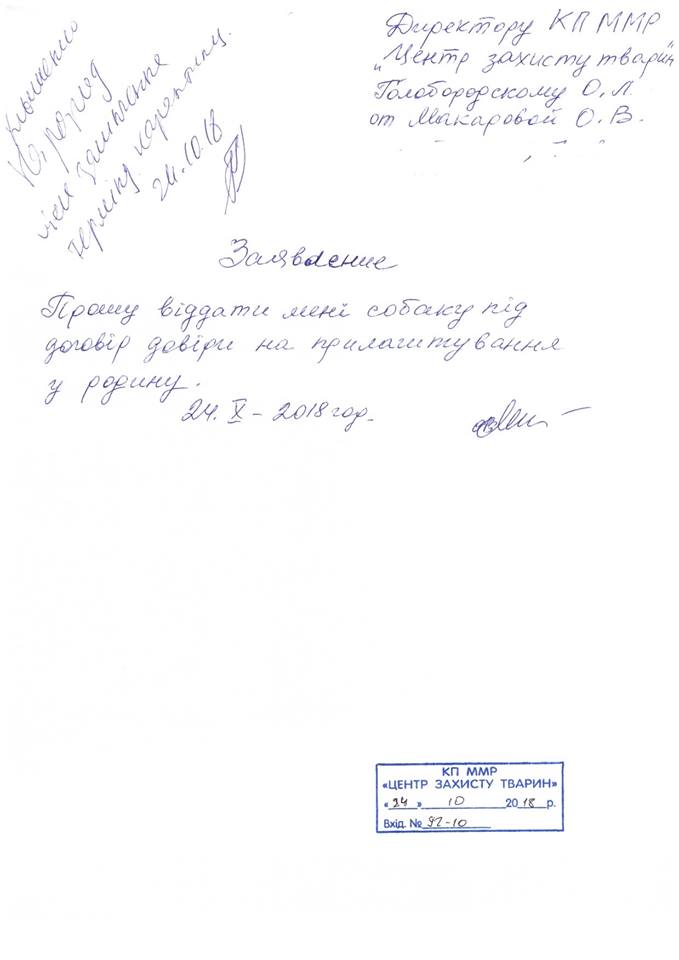 Директору КП ММР
"Центр захисту тварин"
Голобородскому О.Л.
от Макаровой О.В.
після закінчення
терміну карантину.
24.10.18
Заявление
Прошу віддати мені собаку під
договір довіри на прилаштування
у родину.
24. X – 2018 год.
КП ММР
«ЦЕНТР ЗАХИСТУ ТВАРИН»
«24» 10 2018 р.
Вхід. № 92-10